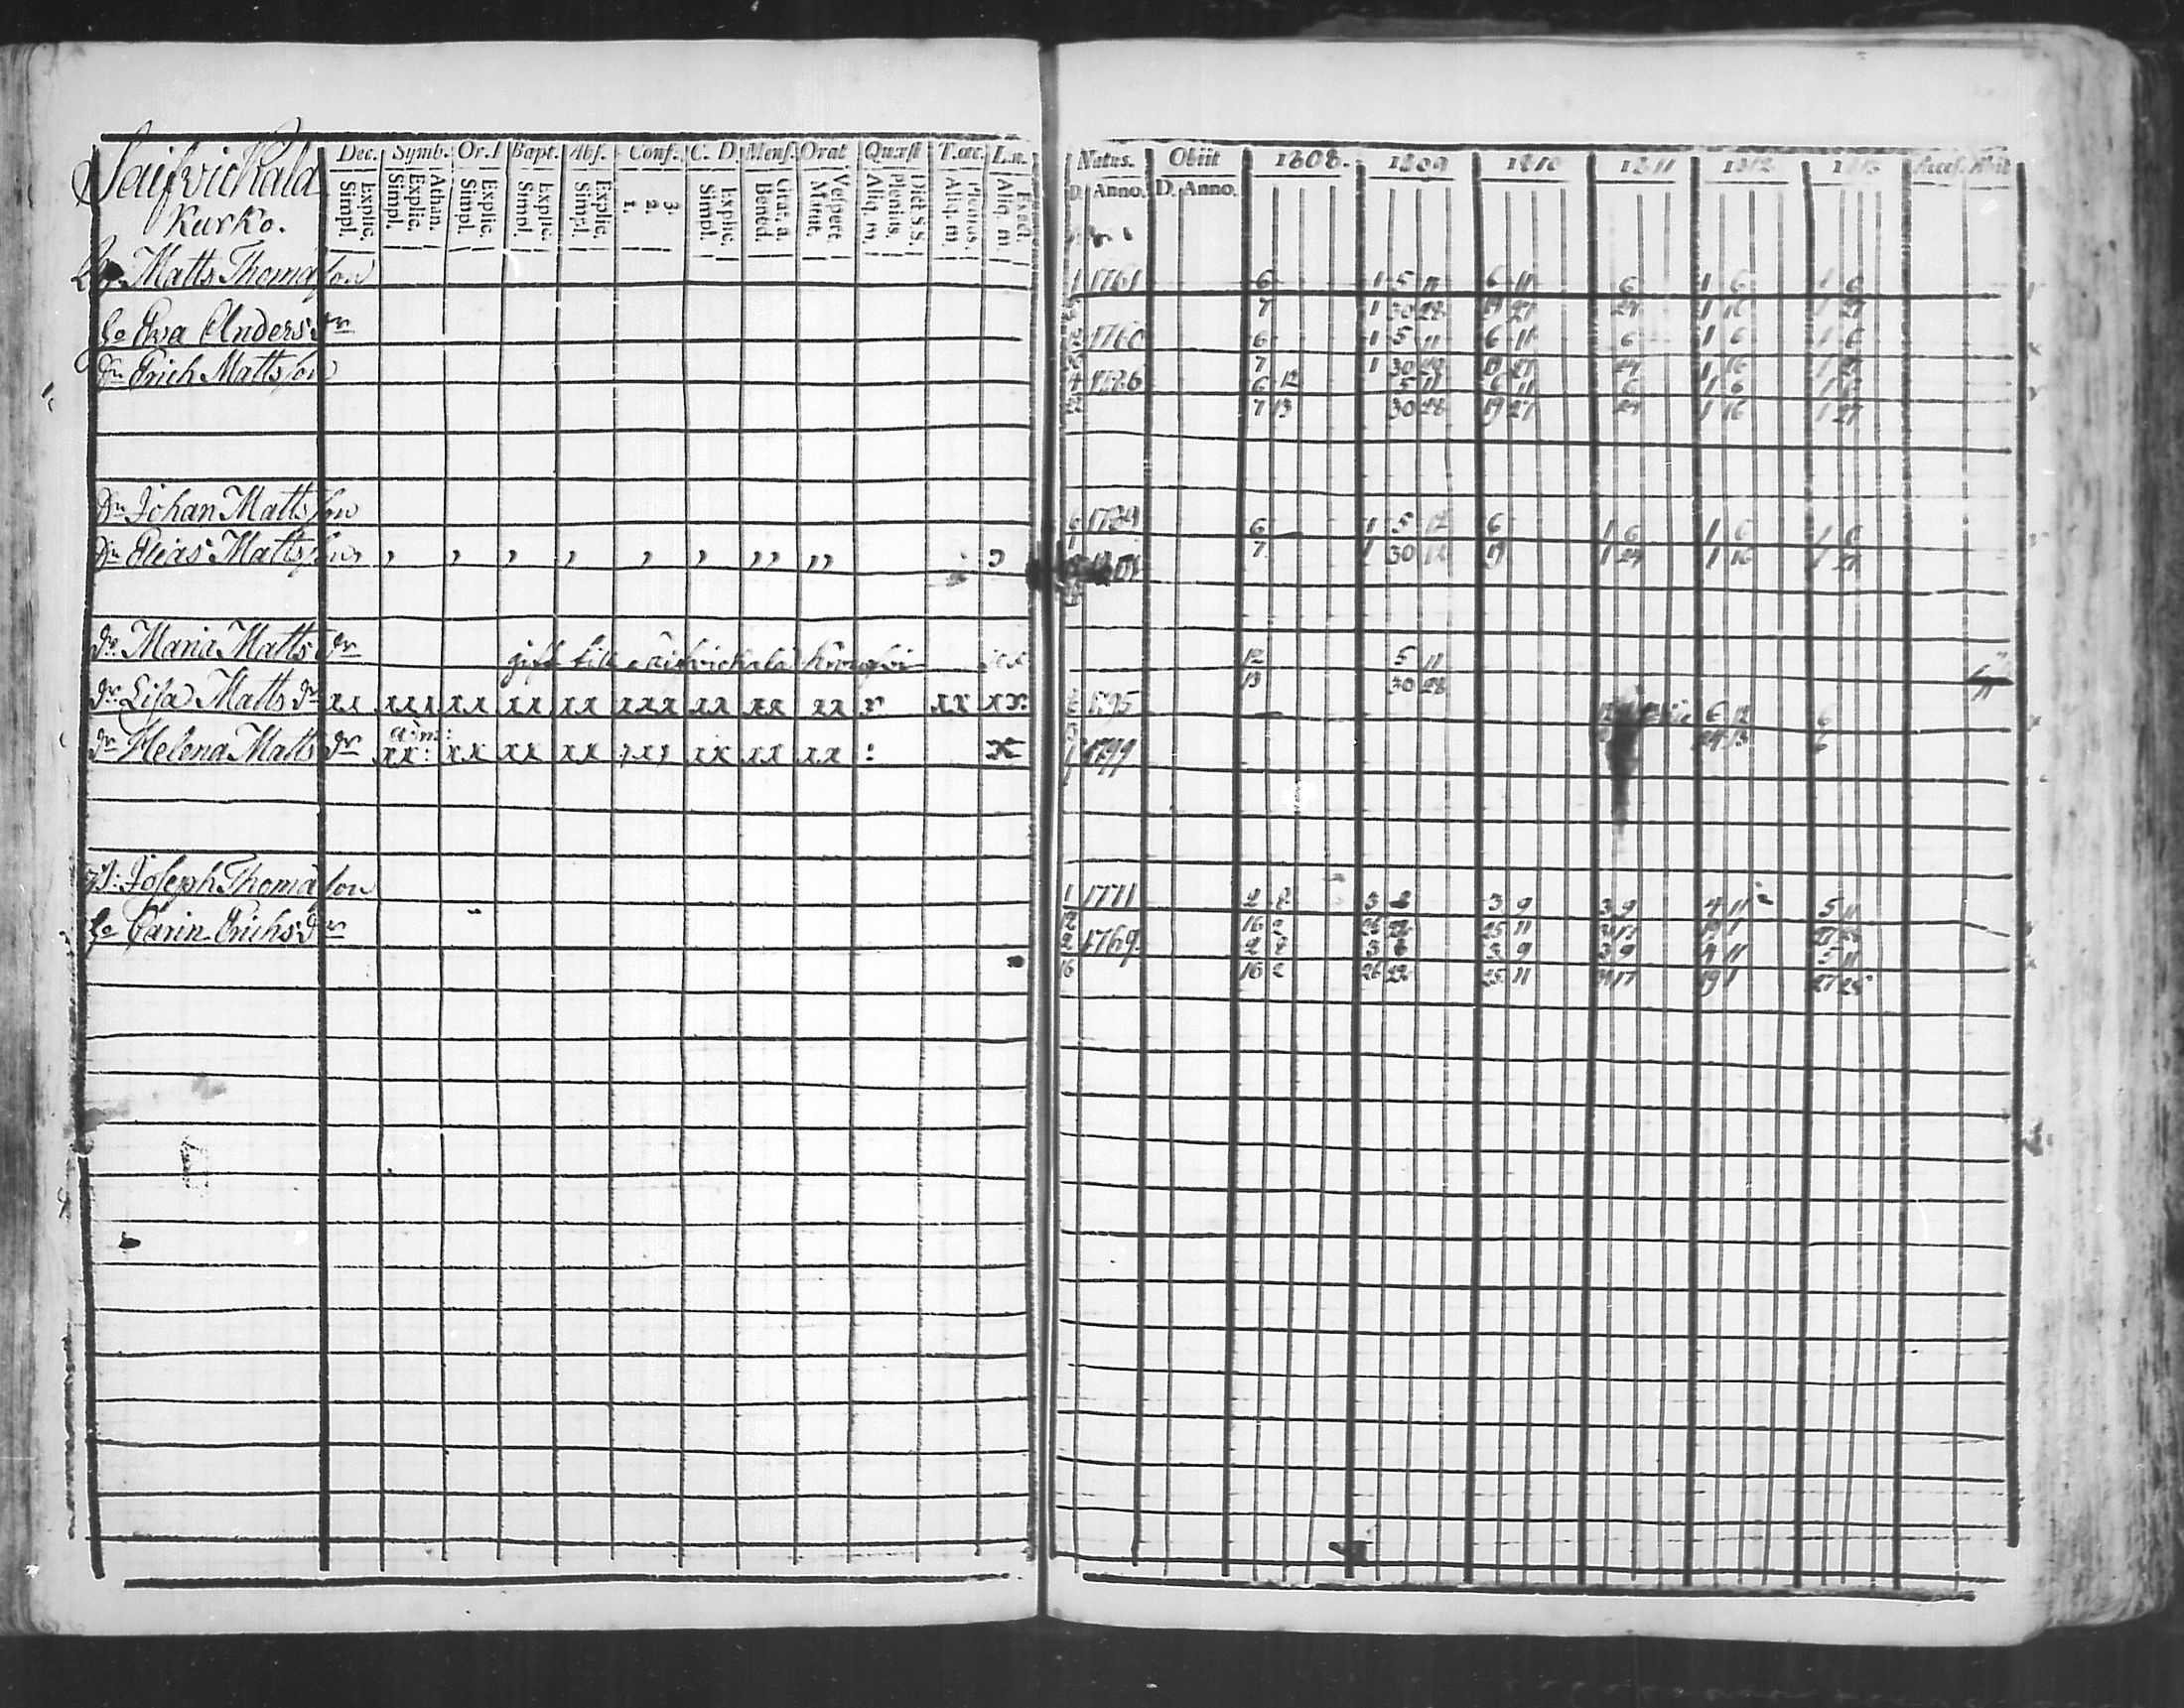 Saifvickala
Kurko.
Dec. Symb. Or.D Bapt. Abs. Conf. C. D. Mens. Orat Quæst T.œc. L.n.
Explic. Simpl. Athan. Explic. Simpl. Explic. Simpl. Explic. Simpl. Explic. Simpl. 3. 2. 1. Explic. Simpl. Grat. a. Bened. Vespert. Matut. Dict. S.S. Plenius. Aliq. m. Plenius. Aliq. m. Exact. Aliq. m.
Natus. Obiit 1808. 1809 1810 1811 1812 1813 Access. Abit
D. Anno. D. Anno.
Matts Thomasson 1 1761 6 1 5 11 6 11 6 1 6 1 6
7 1 30 28 19 27 24 1 16 1 27
Ewa Anders dr 1760 6 1 5 11 6 11 6 1 6 1 6
7 1 30 28 19 27 24 1 16 1 27
Erich Mattsson 4 1786 6 12 5 11 6 11 6 1 6 1 6
7 13 30 28 19 27 24 1 16 1 27
Johan Mattsson 6 1789 6 1 5 12 6 1 6 1 6 1 6
7 1 30 19 1 24 1 16 1 27
Elias Mattsson
Maria Matts dr gift till Saifvickala 12 5 11
13 30 28
Lisa Matts dr xx xxx xx xx xx xxx xx xx xx x xx xx 6 1795 6 12 6
24 13 6
adm:
Helena Matts dr xx: xx xx xx xx xx xx : x 1 1799
Joseph Thomasson 1 1771 2 8 3 8 3 9 3 9 4 11 5 11
12 16 2 26 22 25 11 17 19 1 27 25
Carin Erichs dr 2 1769 2 8 3 8 3 9 3 9 4 11 5 11
16 16 2 26 22 25 11 17 19 1 27 25